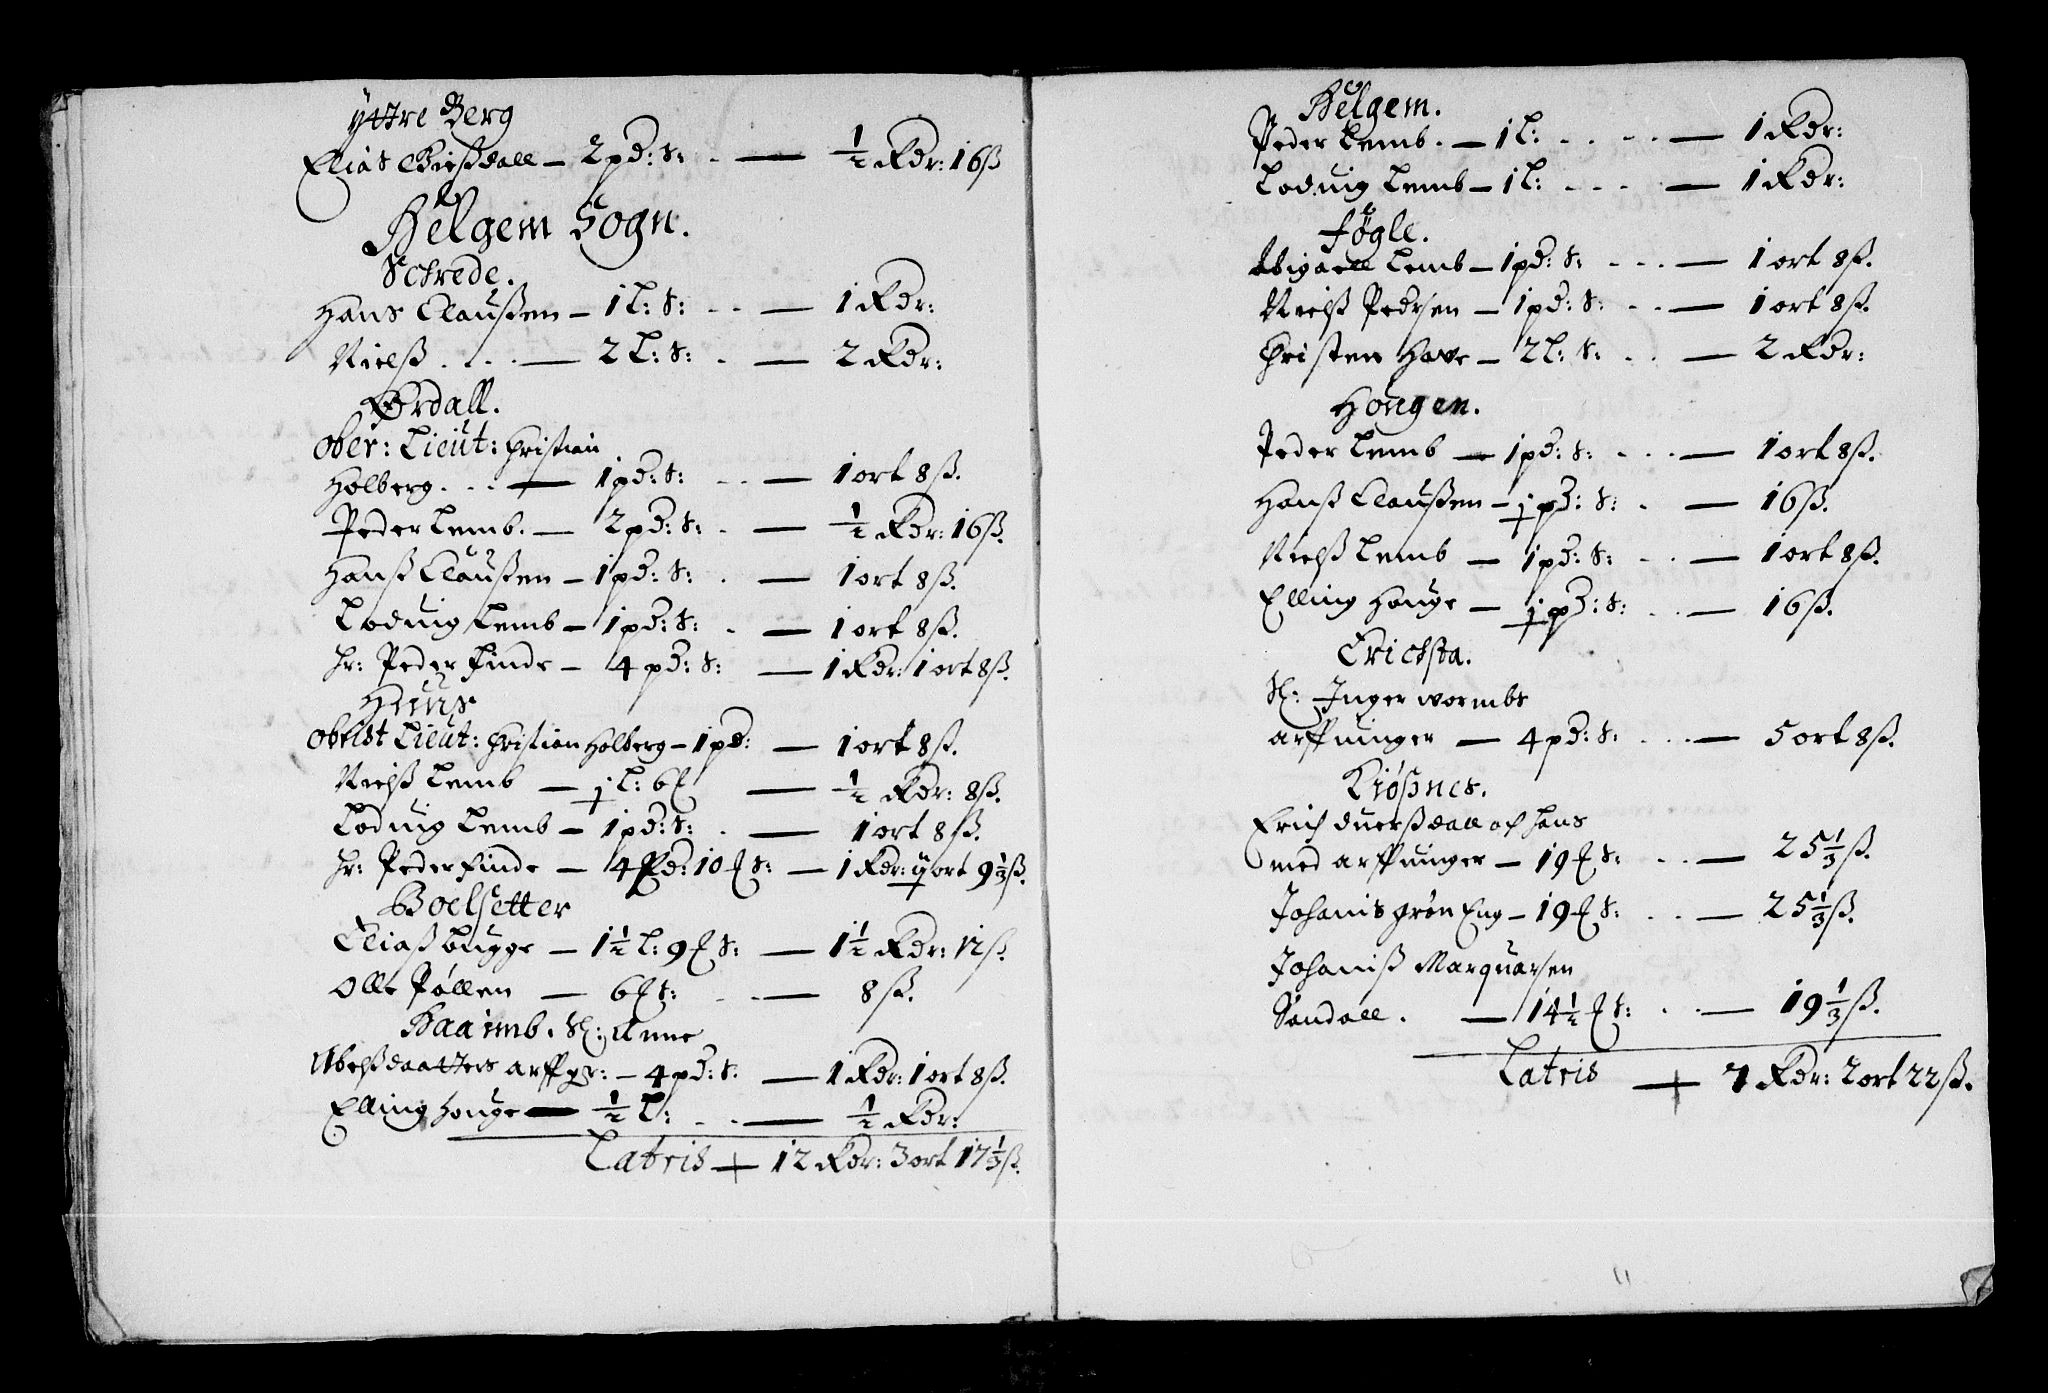 Yttre Berg
Elias Giessdall – 2 pd: s: – ½ Rdr: 16ß
Helgem Sogn.
Schrede.
Hans Claußen – 1 L: s: – 1 Rdr:
Nielß – 2 L: s: – 2 Rdr:
Ørdall.
Ober: Lieut: Christian
Holberg – 1 pd: s: – 1 ort 8ß.
Peder Lemb. – 2 pd: s: – ½ Rdr: 16ß.
Hanß Claußen – 1 pd: s: – 1 ort 8ß.
Lodvig Lemb – 1 pd: s: – 1 ort 8ß.
hr: Peder Finde – 4 pd: s: – 1 Rdr: 1 ort 8ß.
Houg
Obrist Lieut: Christian Holberg – 1 pd: – 1 ort 8ß.
Nielß Lemb – ½ L: 6 – ½ Rdr: 8ß.
Lodvig Lemb – 1 pd: s: – 1 ort 8ß.
hr: Peder Finde – 4 Pd: 10 s: – 1 Rdr: ort 9⅓ß.
Boelsetter
Eliaß bugge – 1½ L: 9 s: – 1½ Rdr: 12ß.
Olle Pøllen – 6 s: – 8ß.
Kaaimb. Sl: Anne
Nielßdaatters arffgr: – 4 pd: s. – 1 Rdr: 1 ort 8ß.
Elling houge – ½ L: – ½ Rdr:
Latris – 12 Rdr: 3 ort 17⅓ß.
Helgem.
Peder Lemb. – 1 L: – 1 Rdr:
Lodvig Lemb – 1 L: – 1 Rdr:
føgle.
Abigaell Lemb – 1 pd: s: – 1 ort 8ß.
Nielß Pedrsen – 1 pd: s: – 1 ort 8ß.
Christen Have – 2 L: s: – 2 Rdr:
Hougen.
Peder Lemb – 1 pd: s: – 1 ort 8ß.
Hanß Claußen – ½ pd: s: – 16ß.
Nielß Lemb – 1 pd: s: – 1 ort 8ß.
Elling Houge – ½ pd: s: – 16ß.
Erichsta.
Sl: Inger wormbs
arffuinger – 4 pd: s: – 5 ort 8ß.
Kiøßnes.
Erich duerßdall och hans
med arffuinger – 19 s: – 25⅓ß.
Johanis grøn Eng – 19 s: – 25⅓ß.
Johaniß Marquarsen
Søndall. – 14½ s: – 19⅓ß.
Latris – 7 Rdr: 2 ort 22ß.